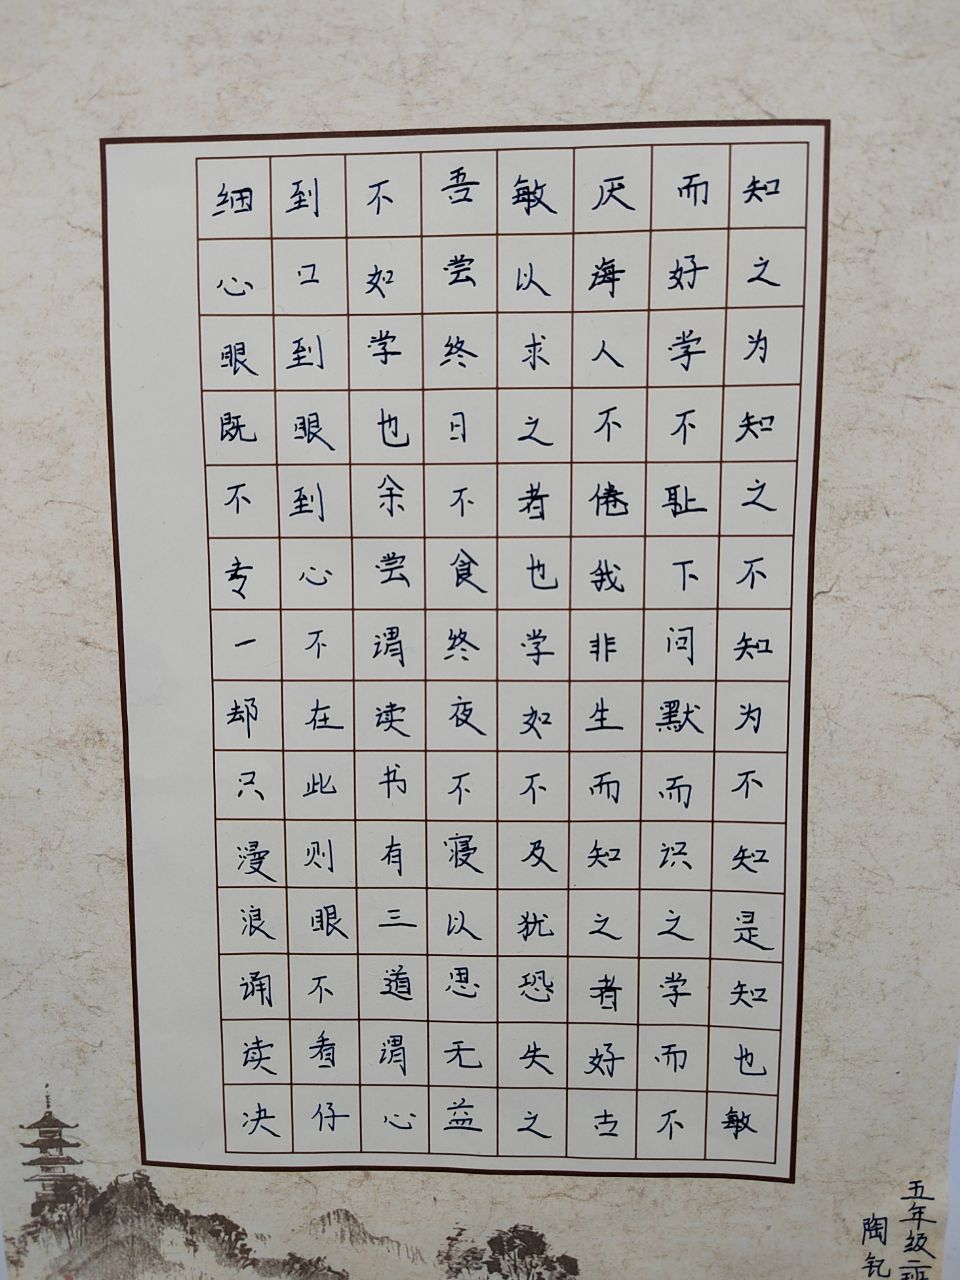 知之为知之不知为不知是知也敏
而好学不耻下问默而识之学而不
厌诲人不倦我非生而知之者好古
敏以求之者也学如不及犹恐失之
吾尝终日不食终夜不寝以思无益
不如学也余尝谓读书有三道谓心
到口到眼到心不在此则眼不看仔
细心眼既不专一却只漫浪诵读决
五年级二班
陶钇